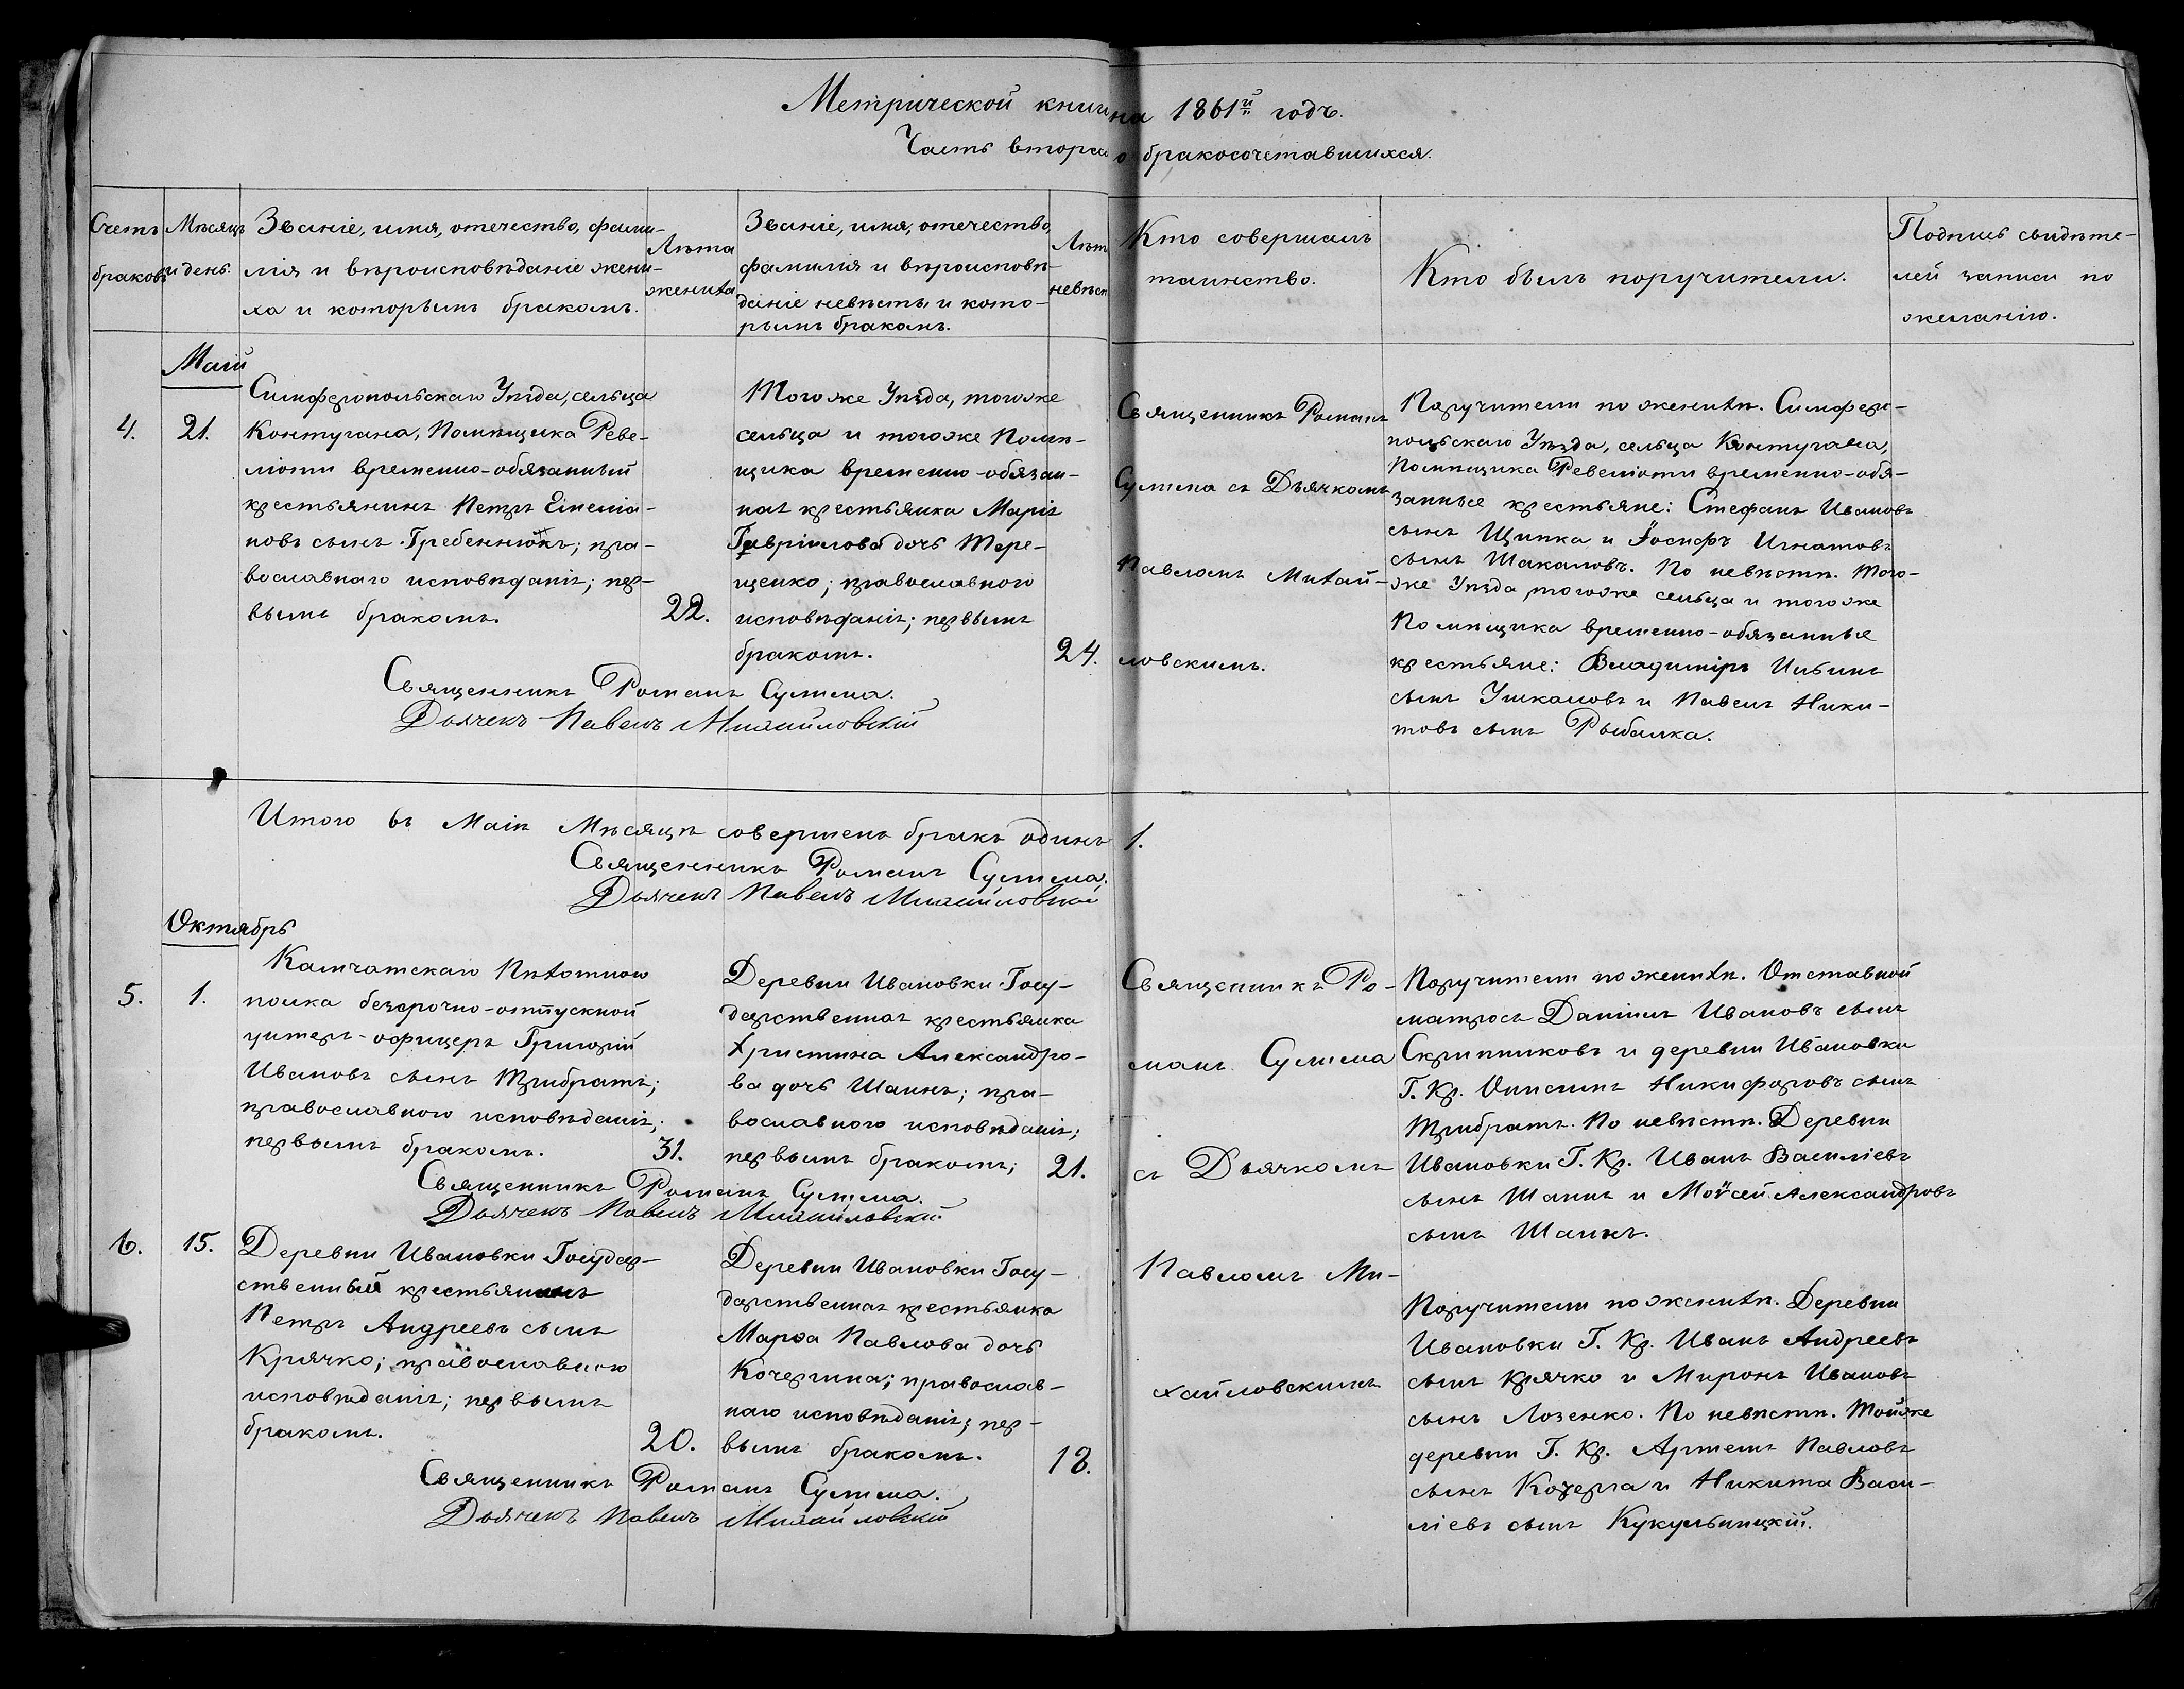 Метрической книги на 1861й годъ.
Часть вторая о бракосочетавшихся.
Счетъ
браковъ
Мѣсяцъ
и день.
Званіе, имя, отечество, фами-
лія и вѣроисповѣданіе жени-
ха и которымъ бракомъ.
Лѣта
жениха
Званіе, имя, отечество,
фамилія и вѣроисповѣ-
даніе невѣсты и кото-
рымъ бракомъ.
Лѣт
невѣст
Кто совершалъ
таинство.
Кто былъ поручители.
Подпись свидѣте-
лей записи по
желанію.
Маій
4.
21.
Симферопольскаго Уѣзда, сельца
Контугана, Помѣщика Реве-
ліоти временно-обязанный
крестьянинъ Петръ Емелія-
новъ сынъ Гребеннюкъ; пра-
вославнаго исповѣданія; пер-
вымъ бракомъ.
22.
Того же Уѣзда, того же
сельца и того же Помѣ-
щика временно-обязан-
ная крестьянка Марія
Гавріилова дочь Тере-
щенко; православного
исповѣданія; первымъ
бракомъ.
24.
Священникъ Романъ
Сулима съ Дьячкомъ
Павломъ Михай-
ловскимъ.
Поручители по женихѣ. Симферо-
польскаго Уѣзда, сельца Контугана,
Помѣщика Ревеліоти временно-обя-
занные крестьяне: Стефанъ Ивановъ
сынъ Щипка и Іосифъ Игнатовъ
сынъ Шакаловъ. По невѣстѣ. Того-
же Уѣзда, того же сельца и того же
Помѣщика временно-обязанные
крестьяне: Владиміръ Ильинъ
сынъ Ушкаловъ и Павелъ Ники-
товъ сынъ Рыбалка.
Священникъ Романъ Сулима.
Дьячекъ Павелъ Михайловскій
Итого въ Маіѣ Мѣсяцѣ совершенъ бракъ одинъ 1.
Священникъ Романъ Сулима.
Дьячекъ Павелъ Михайловскій
Октябрь
5.
1.
Камчатскаго Пѣхотного
полка безсрочно-отпускной
унтеръ-офицеръ Григорій
Ивановъ сынъ Трибратъ;
православного исповѣданія;
первымъ бракомъ.
31.
Деревни Ивановки Госу-
дарственная крестьянка
Христина Александро-
ва дочь Шаинъ; пра-
вославного исповѣданія;
первымъ бракомъ;
21.
Священникъ Ро-
манъ Сулима
съ Дьячкомъ
Павломъ Ми-
хайловскимъ
Поручители по женихѣ. Отставной
матросъ Даніилъ Ивановъ сынъ
Скрипниковъ и деревни Ивановки
Г. Кр. Онисимъ Никифоровъ сынъ
Трибратъ. По невѣстѣ. Деревни
Ивановки Г. Кр. Иванъ Василіевъ
сынъ Шаинъ и Моѵсей Александровъ
сынъ Шаинъ.
Священникъ Романъ Сулима.
Дьячекъ Павелъ Михайловскій
6.
15.
Деревни Ивановки Государ-
ственный крестьянинъ
Петръ Андреевъ сынъ
Крячко; православного
исповѣданія; первымъ
бракомъ.
20.
Деревни Ивановки Госу-
дарственная крестьянка
Марѳа Павлова дочь
Кочергина; православ-
наго исповѣданія; пер-
вымъ бракомъ.
18.
Поручители по женихѣ. Деревни
Ивановки Г. Кр. Иванъ Андреевъ
сынъ Крячко и Миронъ Ивановъ
сынъ Лозенко. По невѣстѣ. Той же
деревни Г. Кр. Артемъ Павловъ
сынъ Кочерга и Никита Васи-
ліевъ сынъ Кукульницкій.
Священникъ Романъ Сулима.
Дьячекъ Павелъ Михайловскій